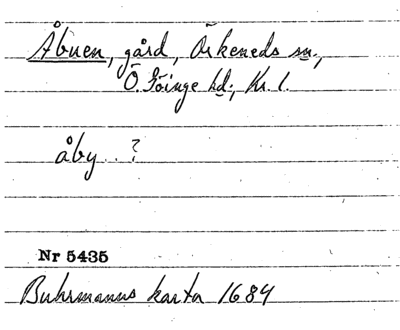 Åbuen, gård, Örkeneds sn.,
Ö. Göinge hd., Kr. l.
åby . . ?
Nr 5435
Buhrmanns karta 1684